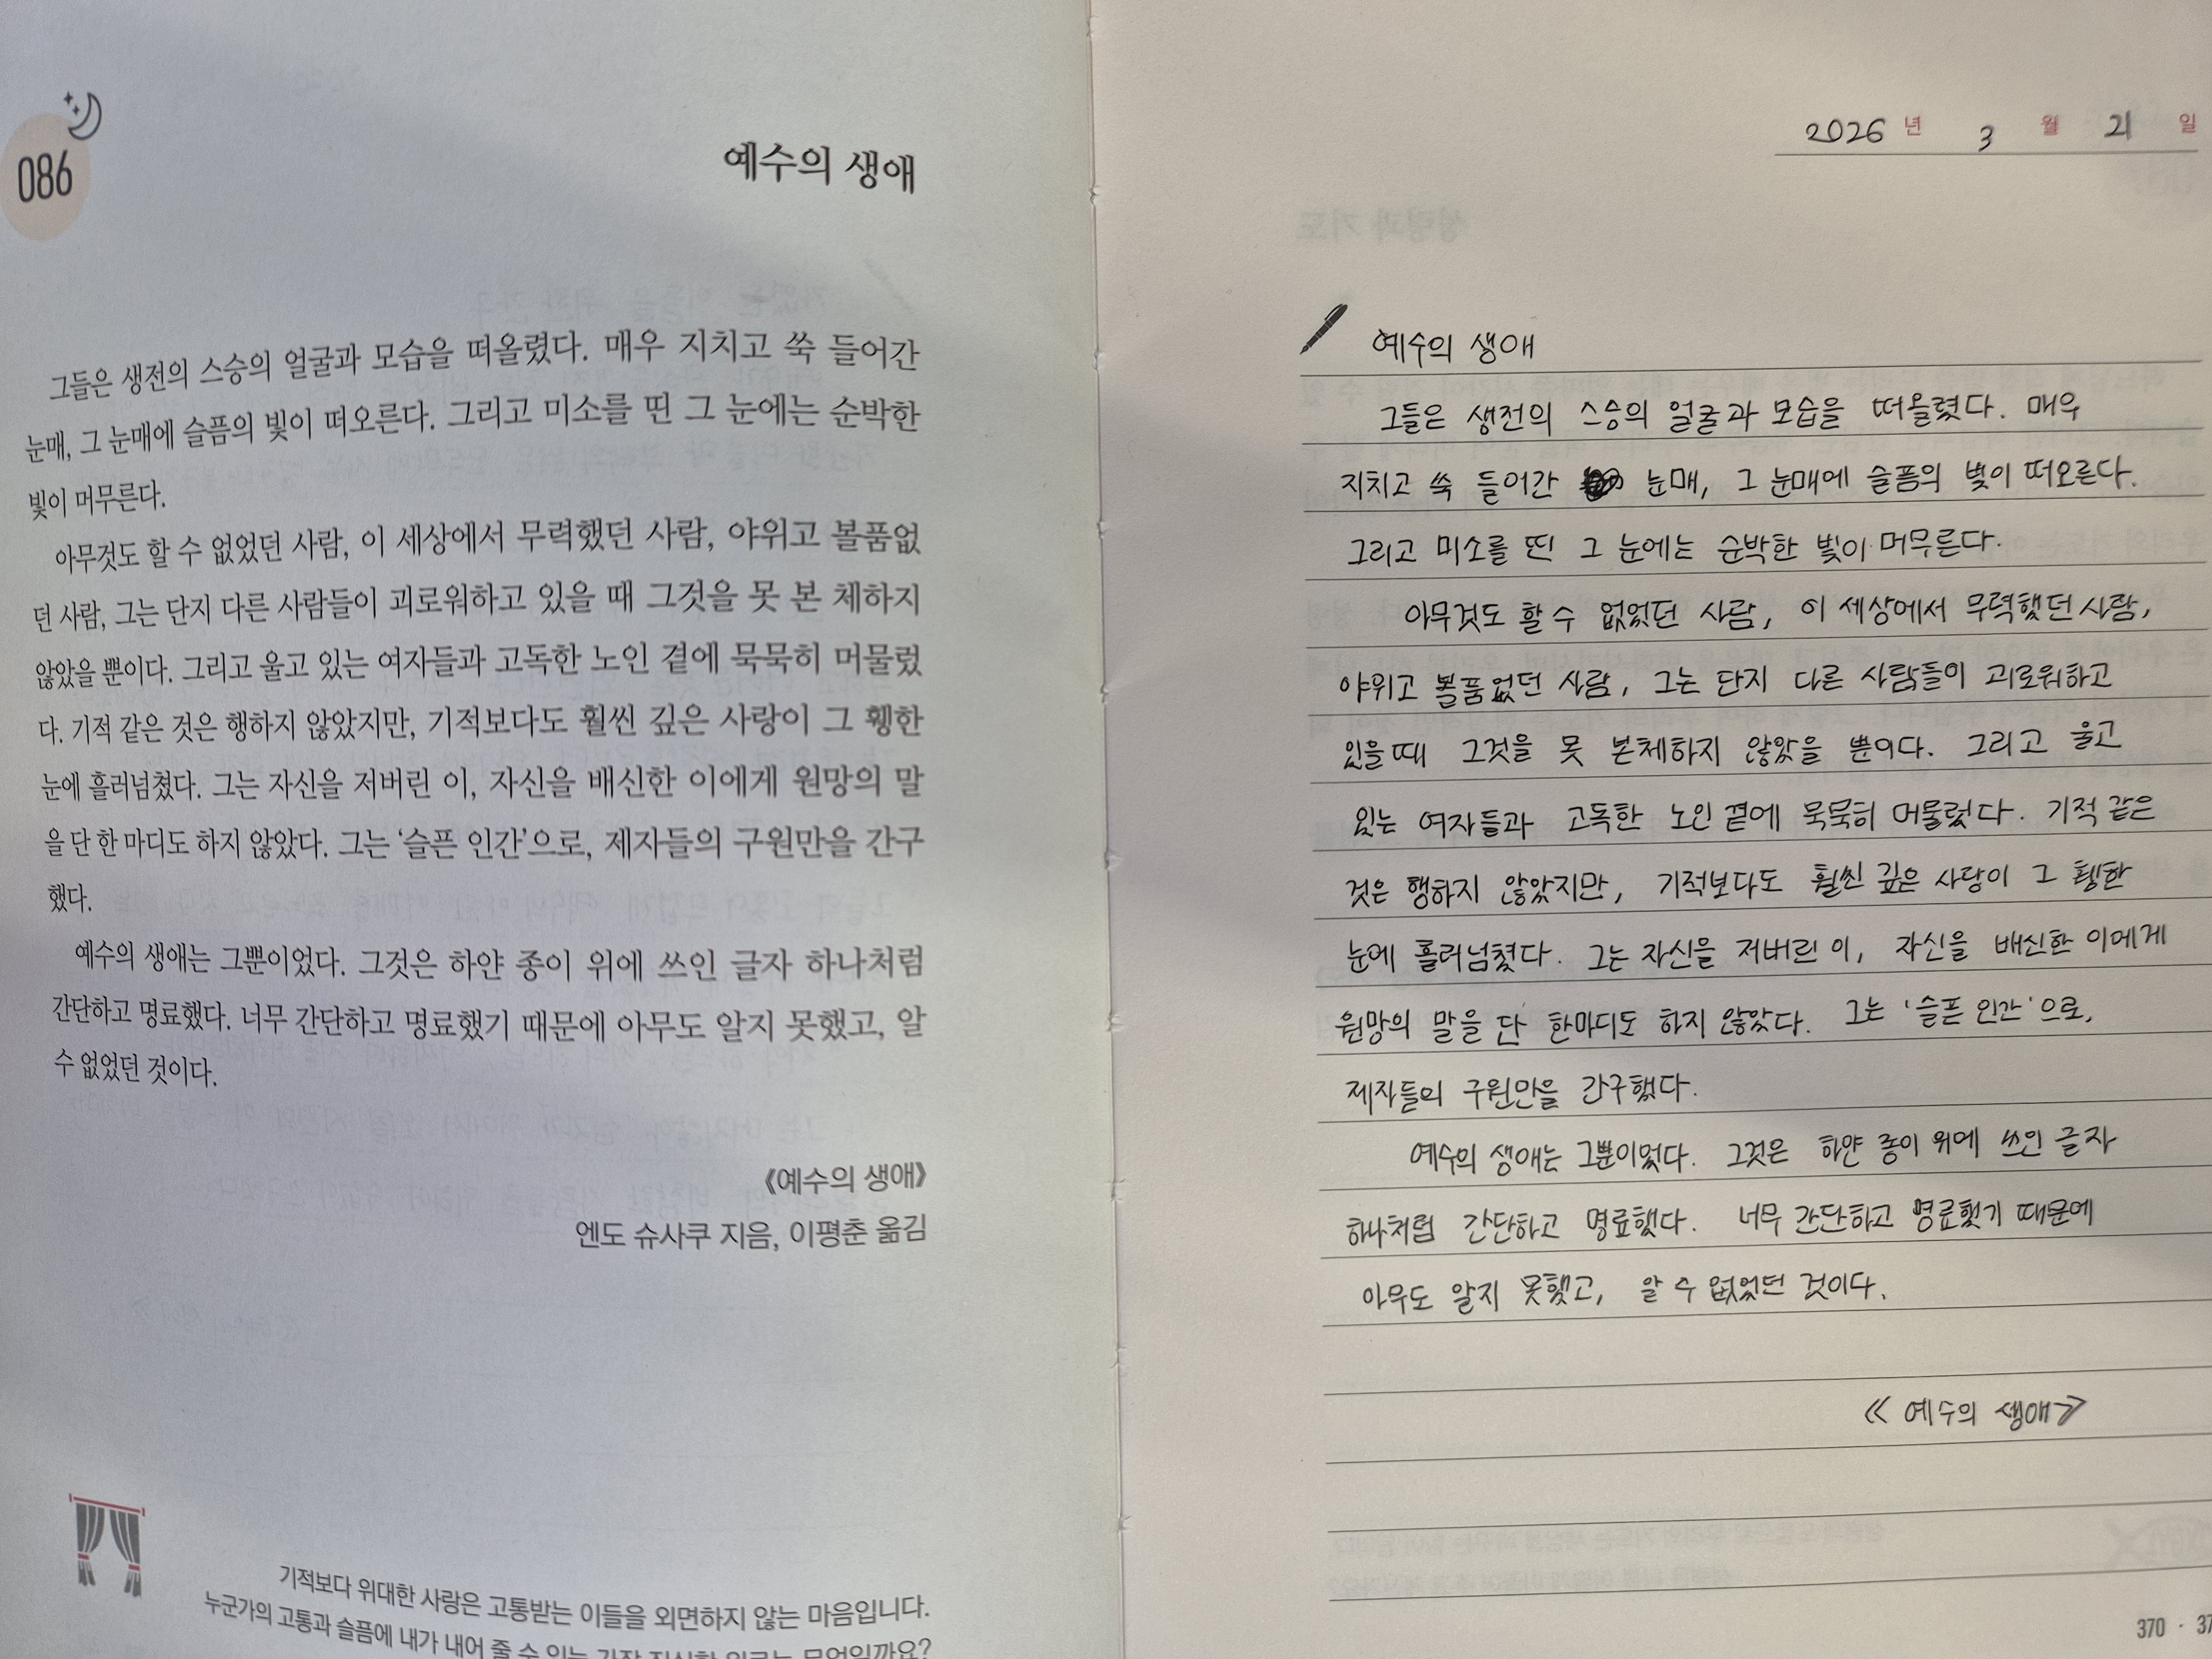 086
예수의 생애
그들은 생전의 스승의 얼굴과 모습을 떠올렸다. 매우 지치고 쑥 들어간
눈매, 그 눈매에 슬픔의 빛이 떠오른다. 그리고 미소를 띤 그 눈에는 순박한
빛이 머무른다.
아무것도 할 수 없었던 사람, 이 세상에서 무력했던 사람, 야위고 볼품없
던 사람, 그는 단지 다른 사람들이 괴로워하고 있을 때 그것을 못 본 체하지
않았을 뿐이다. 그리고 울고 있는 여자들과 고독한 노인 곁에 묵묵히 머물렀
다. 기적 같은 것은 행하지 않았지만, 기적보다도 훨씬 깊은 사랑이 그 휑한
눈에 흘러넘쳤다. 그는 자신을 저버린 이, 자신을 배신한 이에게 원망의 말
을 단 한 마디도 하지 않았다. 그는 ‘슬픈 인간’으로, 제자들의 구원만을 간구
했다.
예수의 생애는 그뿐이었다. 그것은 하얀 종이 위에 쓰인 글자 하나처럼
간단하고 명료했다. 너무 간단하고 명료했기 때문에 아무도 알지 못했고, 알
수 없었던 것이다.
《예수의 생애》
엔도 슈사쿠 지음, 이평춘 옮김
기적보다 위대한 사랑은 고통받는 이들을 외면하지 않는 마음입니다.
누군가의 고통과 슬픔에 내가 내어 줄 수 있는 가장 진실한 위로는 무엇일까요?
2026 년 3 월 21 일
예수의 생애
그들은 생전의 스승의 얼굴과 모습을 떠올렸다. 매우
지치고 쑥 들어간 눈매, 그 눈매에 슬픔의 빛이 떠오른다.
그리고 미소를 띤 그 눈에는 순박한 빛이 머무른다.
아무것도 할 수 없었던 사람, 이 세상에서 무력했던 사람,
야위고 볼품없었던 사람, 그는 단지 다른 사람들이 괴로워하고
있을 때 그것을 못 본체하지 않았을 뿐이다. 그리고 울고
있는 여자들과 고독한 노인 곁에 묵묵히 머물렀다. 기적 같은
것은 행하지 않았지만, 기적보다도 훨씬 깊은 사랑이 그 휑한
눈에 흘러넘쳤다. 그는 자신을 저버린 이, 자신을 배신한 이에게
원망의 말을 단 한마디도 하지 않았다. 그는 '슬픈 인간'으로,
제자들의 구원만을 간구했다.
예수의 생애는 그뿐이었다. 그것은 하얀 종이 위에 쓰인 글자
하나처럼 간단하고 명료했다. 너무 간단하고 명료했기 때문에
아무도 알지 못했고, 알 수 없었던 것이다.
《예수의 생애》
370 ·